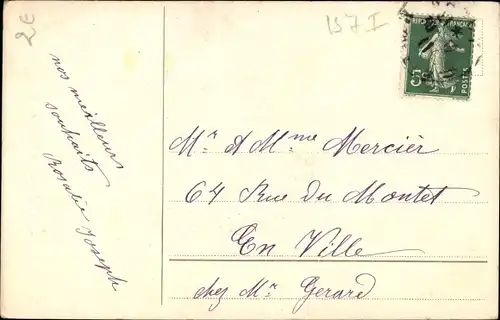 2€
157 I
5
POSTES
nos meilleurs
souhaits
Rosalie Joseph
Mr & Mme Mercier
64 Rue du Montet
En Ville
chez Mr Gerard